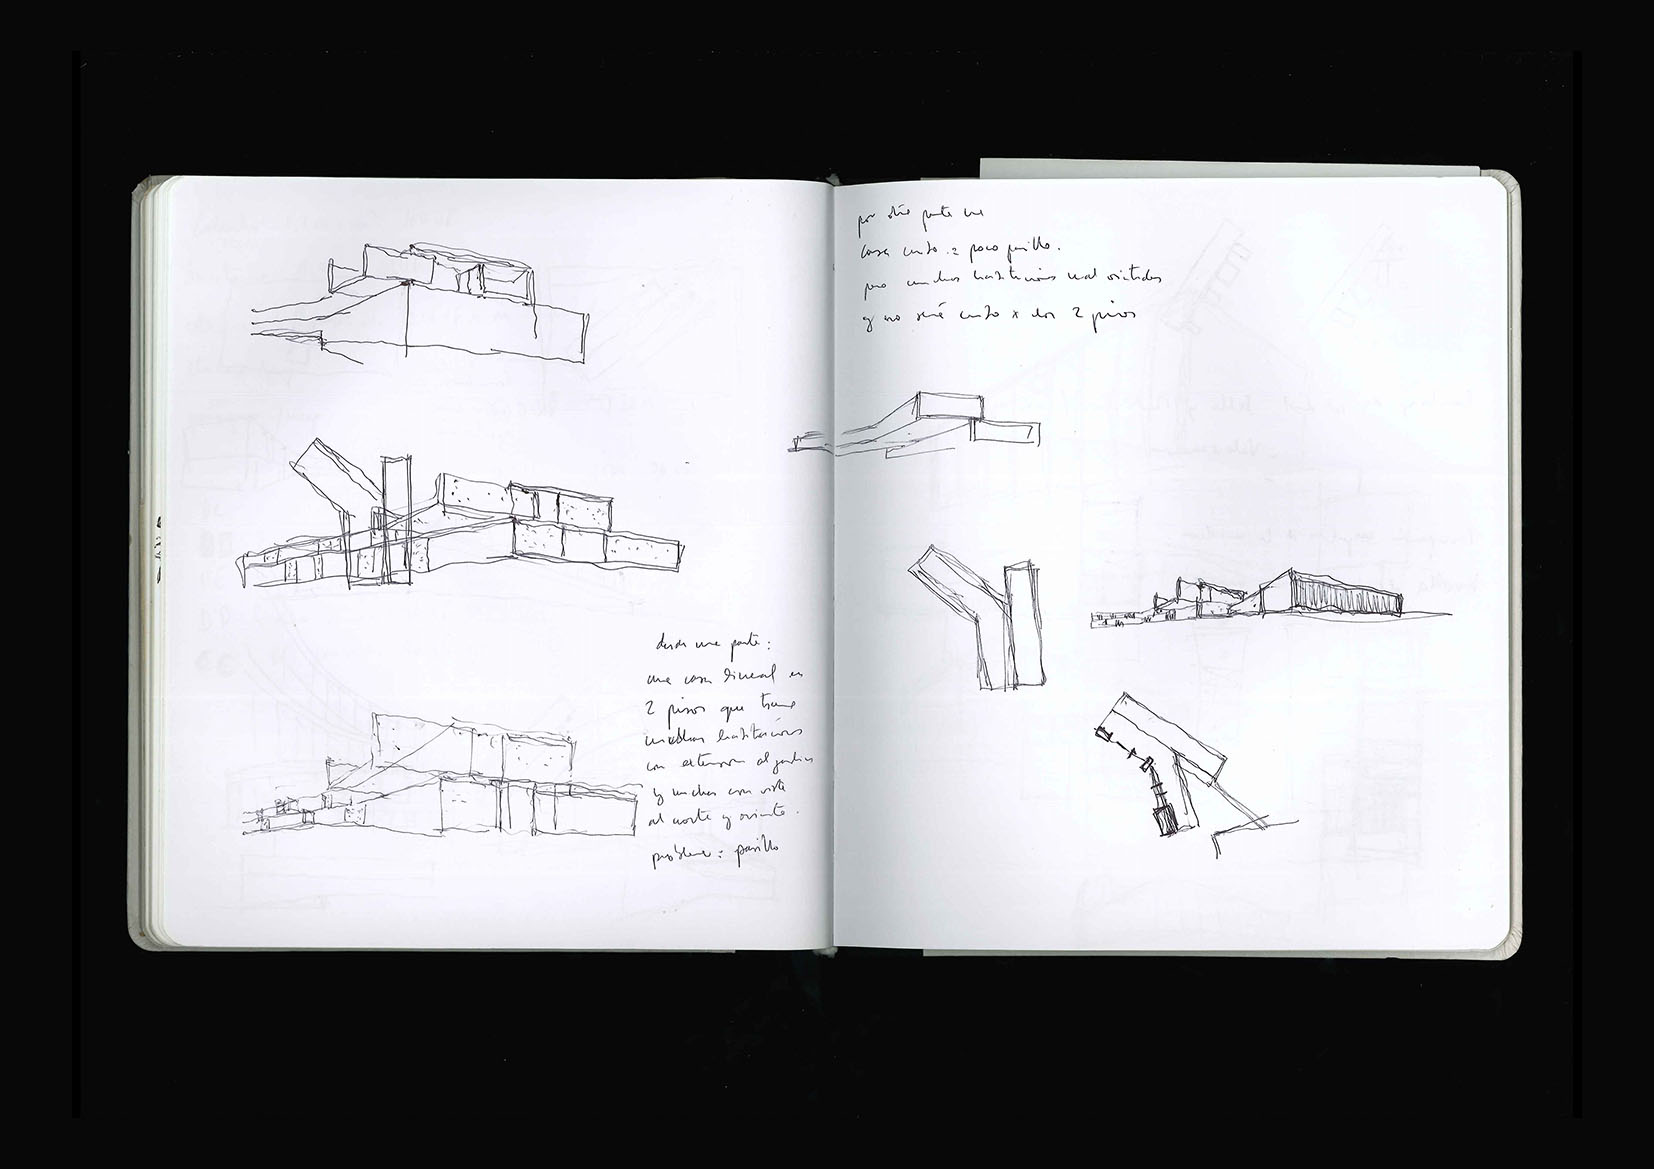 desde una parte:
una casa lineal en
2 pisos que tiene
muchas habitaciones
con extension al jardin
y muchas con vista
al norte y oriente.
problema: pasillo
por otra parte una
casa cerrada = poco pasillo.
pero muchas habitaciones mal orientadas
y no será x los 2 pisos